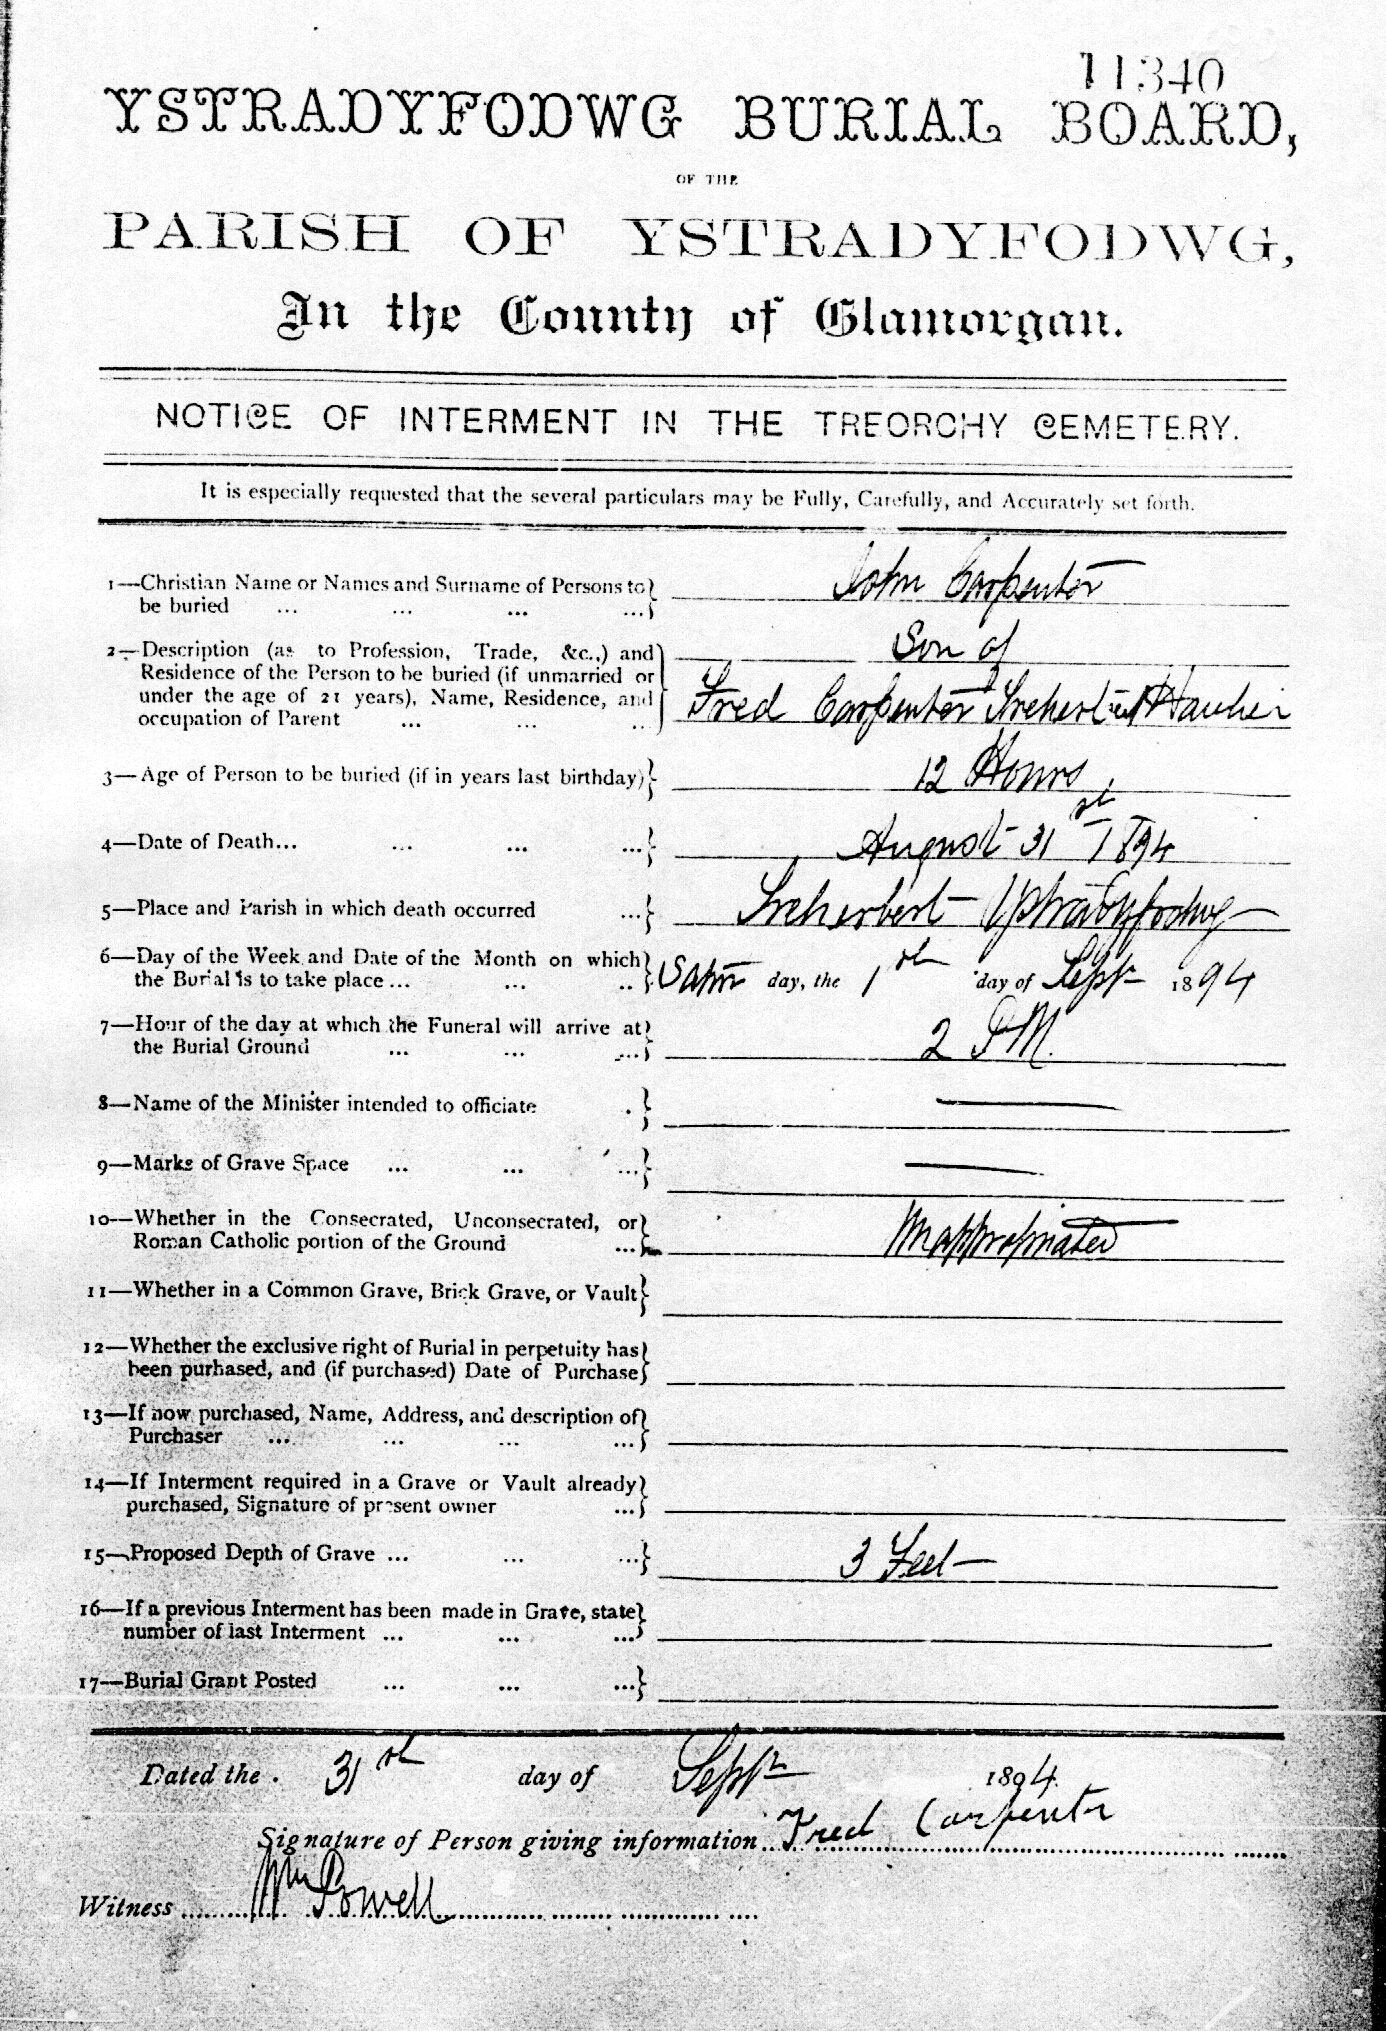 11340
YSTRADYFODWG BURIAL BOARD,
OF THE
PARISH OF YSTRADYFODWG,
In the County of Glamorgan.
NOTICE OF INTERMENT IN THE TREORCHY CEMETERY.
It is especially requested that the several particulars may be Fully, Carefully, and Accurately set forth.
1—Christian Name or Names and Surname of Persons to } John Carpenter
be buried ... ... ... ...
2—Description (as to Profession, Trade, &c.,) and Son of
Residence of the Person to be buried (if unmarried or
under the age of 21 years), Name, Residence, and Fred Carpenter Treherbert Haulier
occupation of Parent ... ... ...
3—Age of Person to be buried (if in years last birthday) } 12 Hours
4—Date of Death... ... ... ...} August 31st 1894
5—Place and Parish in which death occurred ...} Treherbert Ystradyfodwg
6—Day of the Week and Date of the Month on which } Satur day, the 1st day of Sept 1894
the Burial is to take place ... ... ..
7—Hour of the day at which the Funeral will arrive at } 2 P.M.
the Burial Ground ... ... ...
8—Name of the Minister intended to officiate . } —
9—Marks of Grave Space ... ... ...} —
10—Whether in the Consecrated, Unconsecrated, or } Unappropriated
Roman Catholic portion of the Ground ...
11—Whether in a Common Grave, Brick Grave, or Vault }
12—Whether the exclusive right of Burial in perpetuity has }
been purhased, and (if purchased) Date of Purchase
13—If now purchased, Name, Address, and description of }
Purchaser ... ... ... ...
14—If Interment required in a Grave or Vault already }
purchased, Signature of present owner ...
15—Proposed Depth of Grave ... ... ...} 3 Feet
16—If a previous Interment has been made in Grave, state }
number of last Interment ... ... ...
17—Burial Grant Posted ... ... ...}
Dated the 31st day of Sept 1894
Signature of Person giving information Fred Carpenter
Witness Wm Powell